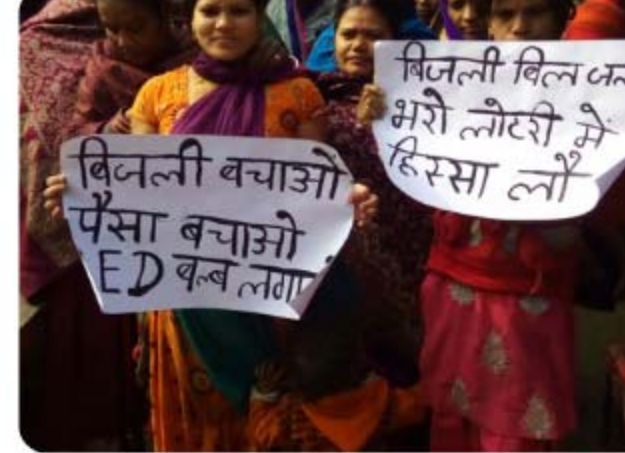 बिजली बचाओ
पैसा बचाओ
ED बल्ब लगा
बिजली बिल जल
भरो लोटरी में
हिस्सा लौ